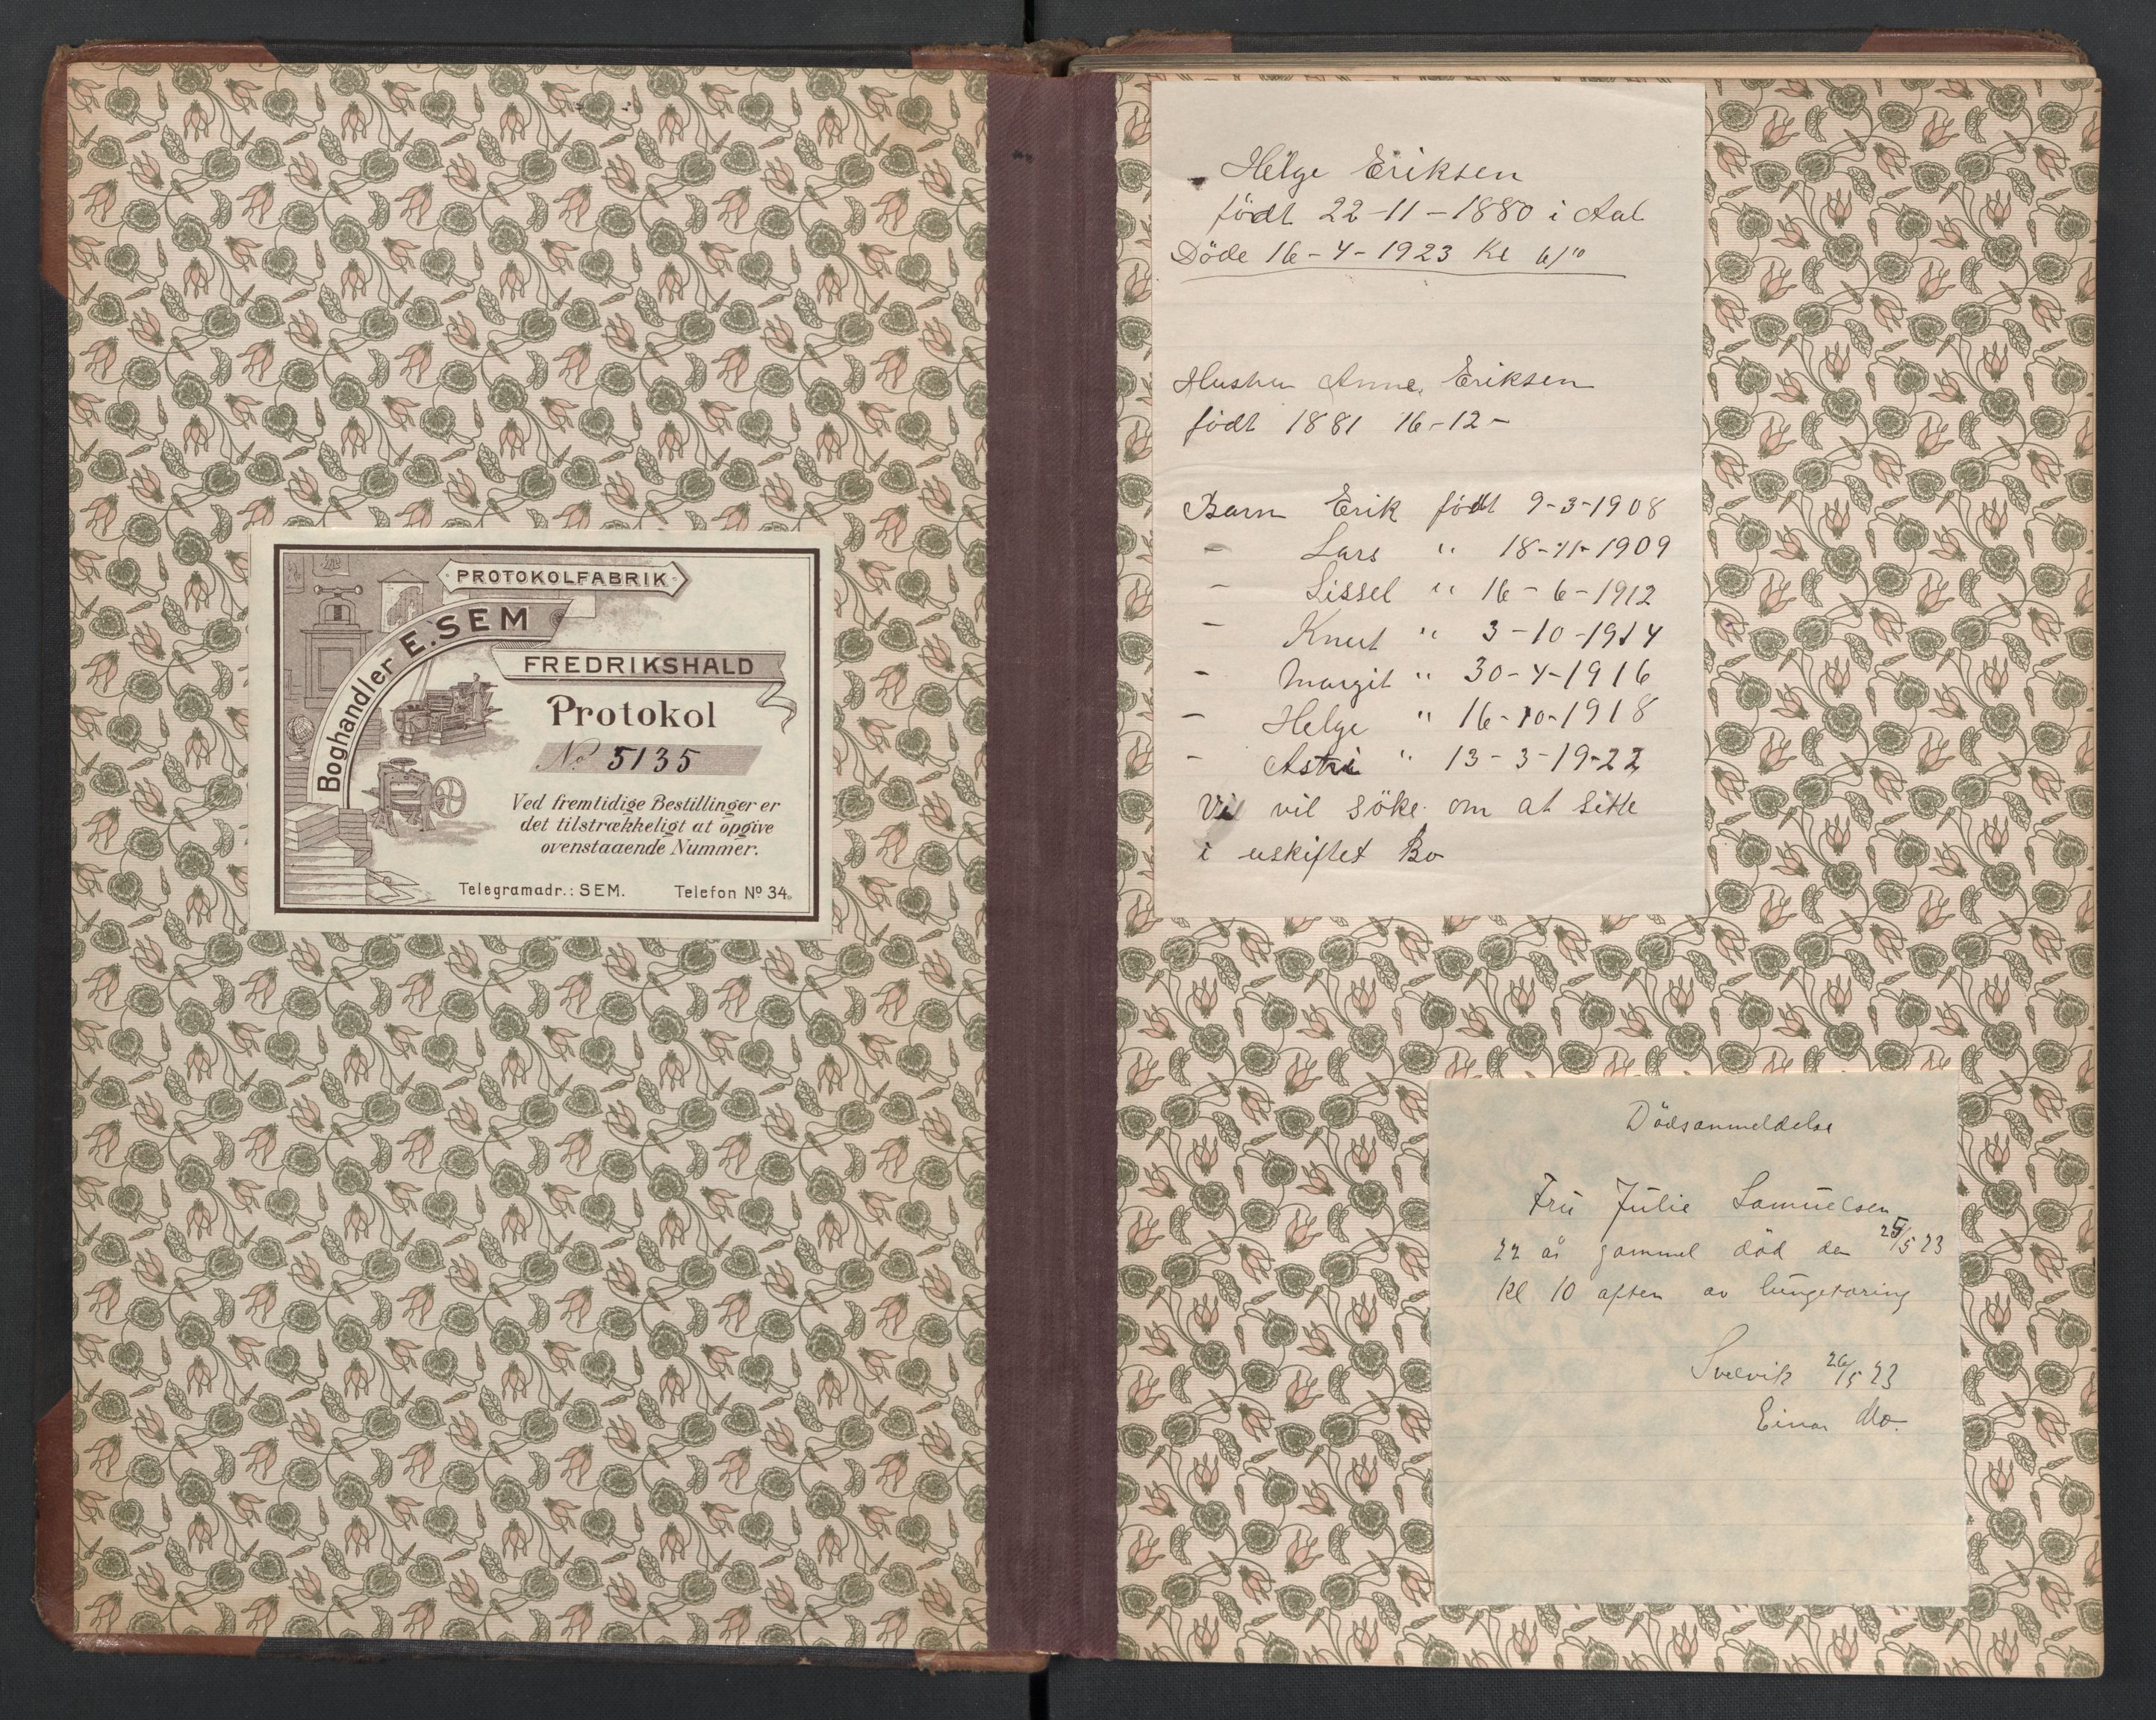 PROTOKOLFABRIK
Boghandler E. SEM
FREDRIKSHALD
Protokol
No 5135
Ved fremtidige Bestillinger er
det tilstrækkeligt at opgive
ovenstaaende Nummer.
Telegramadr.: SEM. Telefon No 34.
Helge Eriksen
født 22-11-1880 i Aal
Döde 16-4-1923 Kl 6/10
Hustru Anne Eriksen
födt 1881 16-12-
Barn Erik født 9-3-1908
- Lars " 18-11-1909
- Sissel " 16-6-1912
- Knut " 3-10-1914
- Margit " 30-4-1916
- Helge " 16-10-1918
- Astri " 13-3-19-22
Vi vil söke om at sitte
i uskiftet Bo
Dödsanmeldelse
Fru Julie Samuelsen
22 år gammel död den 25/5 23
Kl 10 aften av lungetæring
Svelvik 26/5 23
Einar Mo.